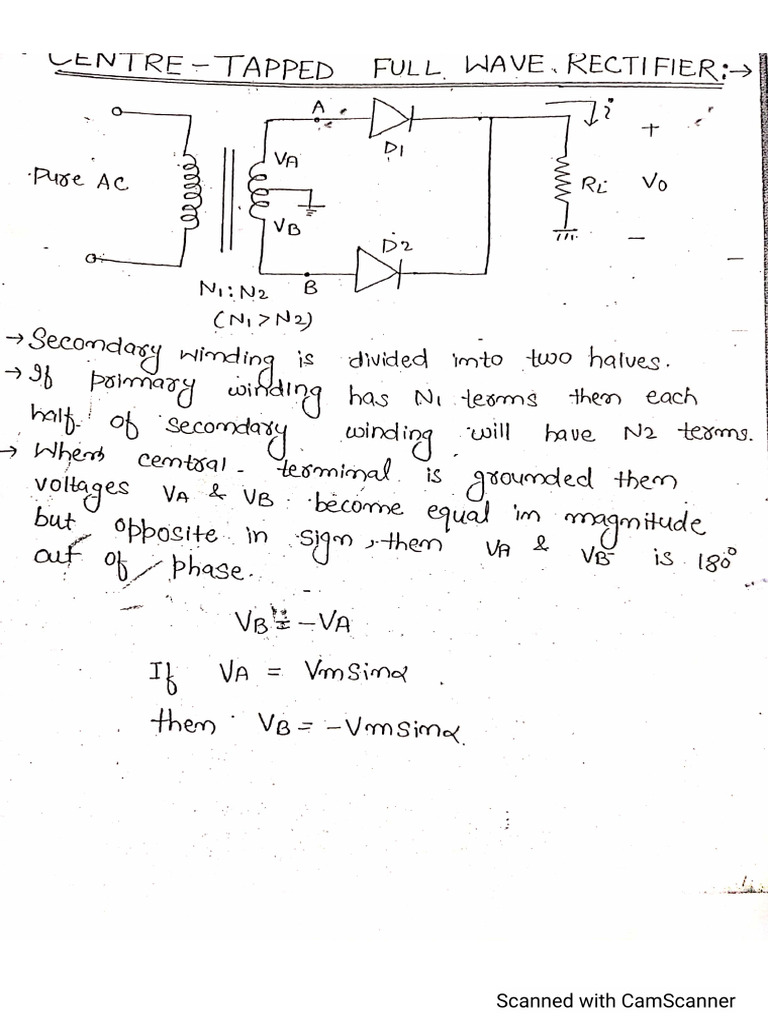 CENTRE-TAPPED FULL WAVE RECTIFIER:→
A
i
D1
+
VA
Pure AC
RL
Vo
VB
D2
−
N1:N2
B
(N1>N2)
→ Secondary winding is divided into two halves.
→ If primary winding has N1 terms then each
half of secondary winding will have N2 terms.
→ When central terminal is grounded then
voltages VA & VB become equal in magnitude
but opposite in sign, then VA & VB is 180°
out of phase.
VB = -VA
If VA = Vm Sinα
then VB = -Vm Sinα.
Scanned with CamScanner